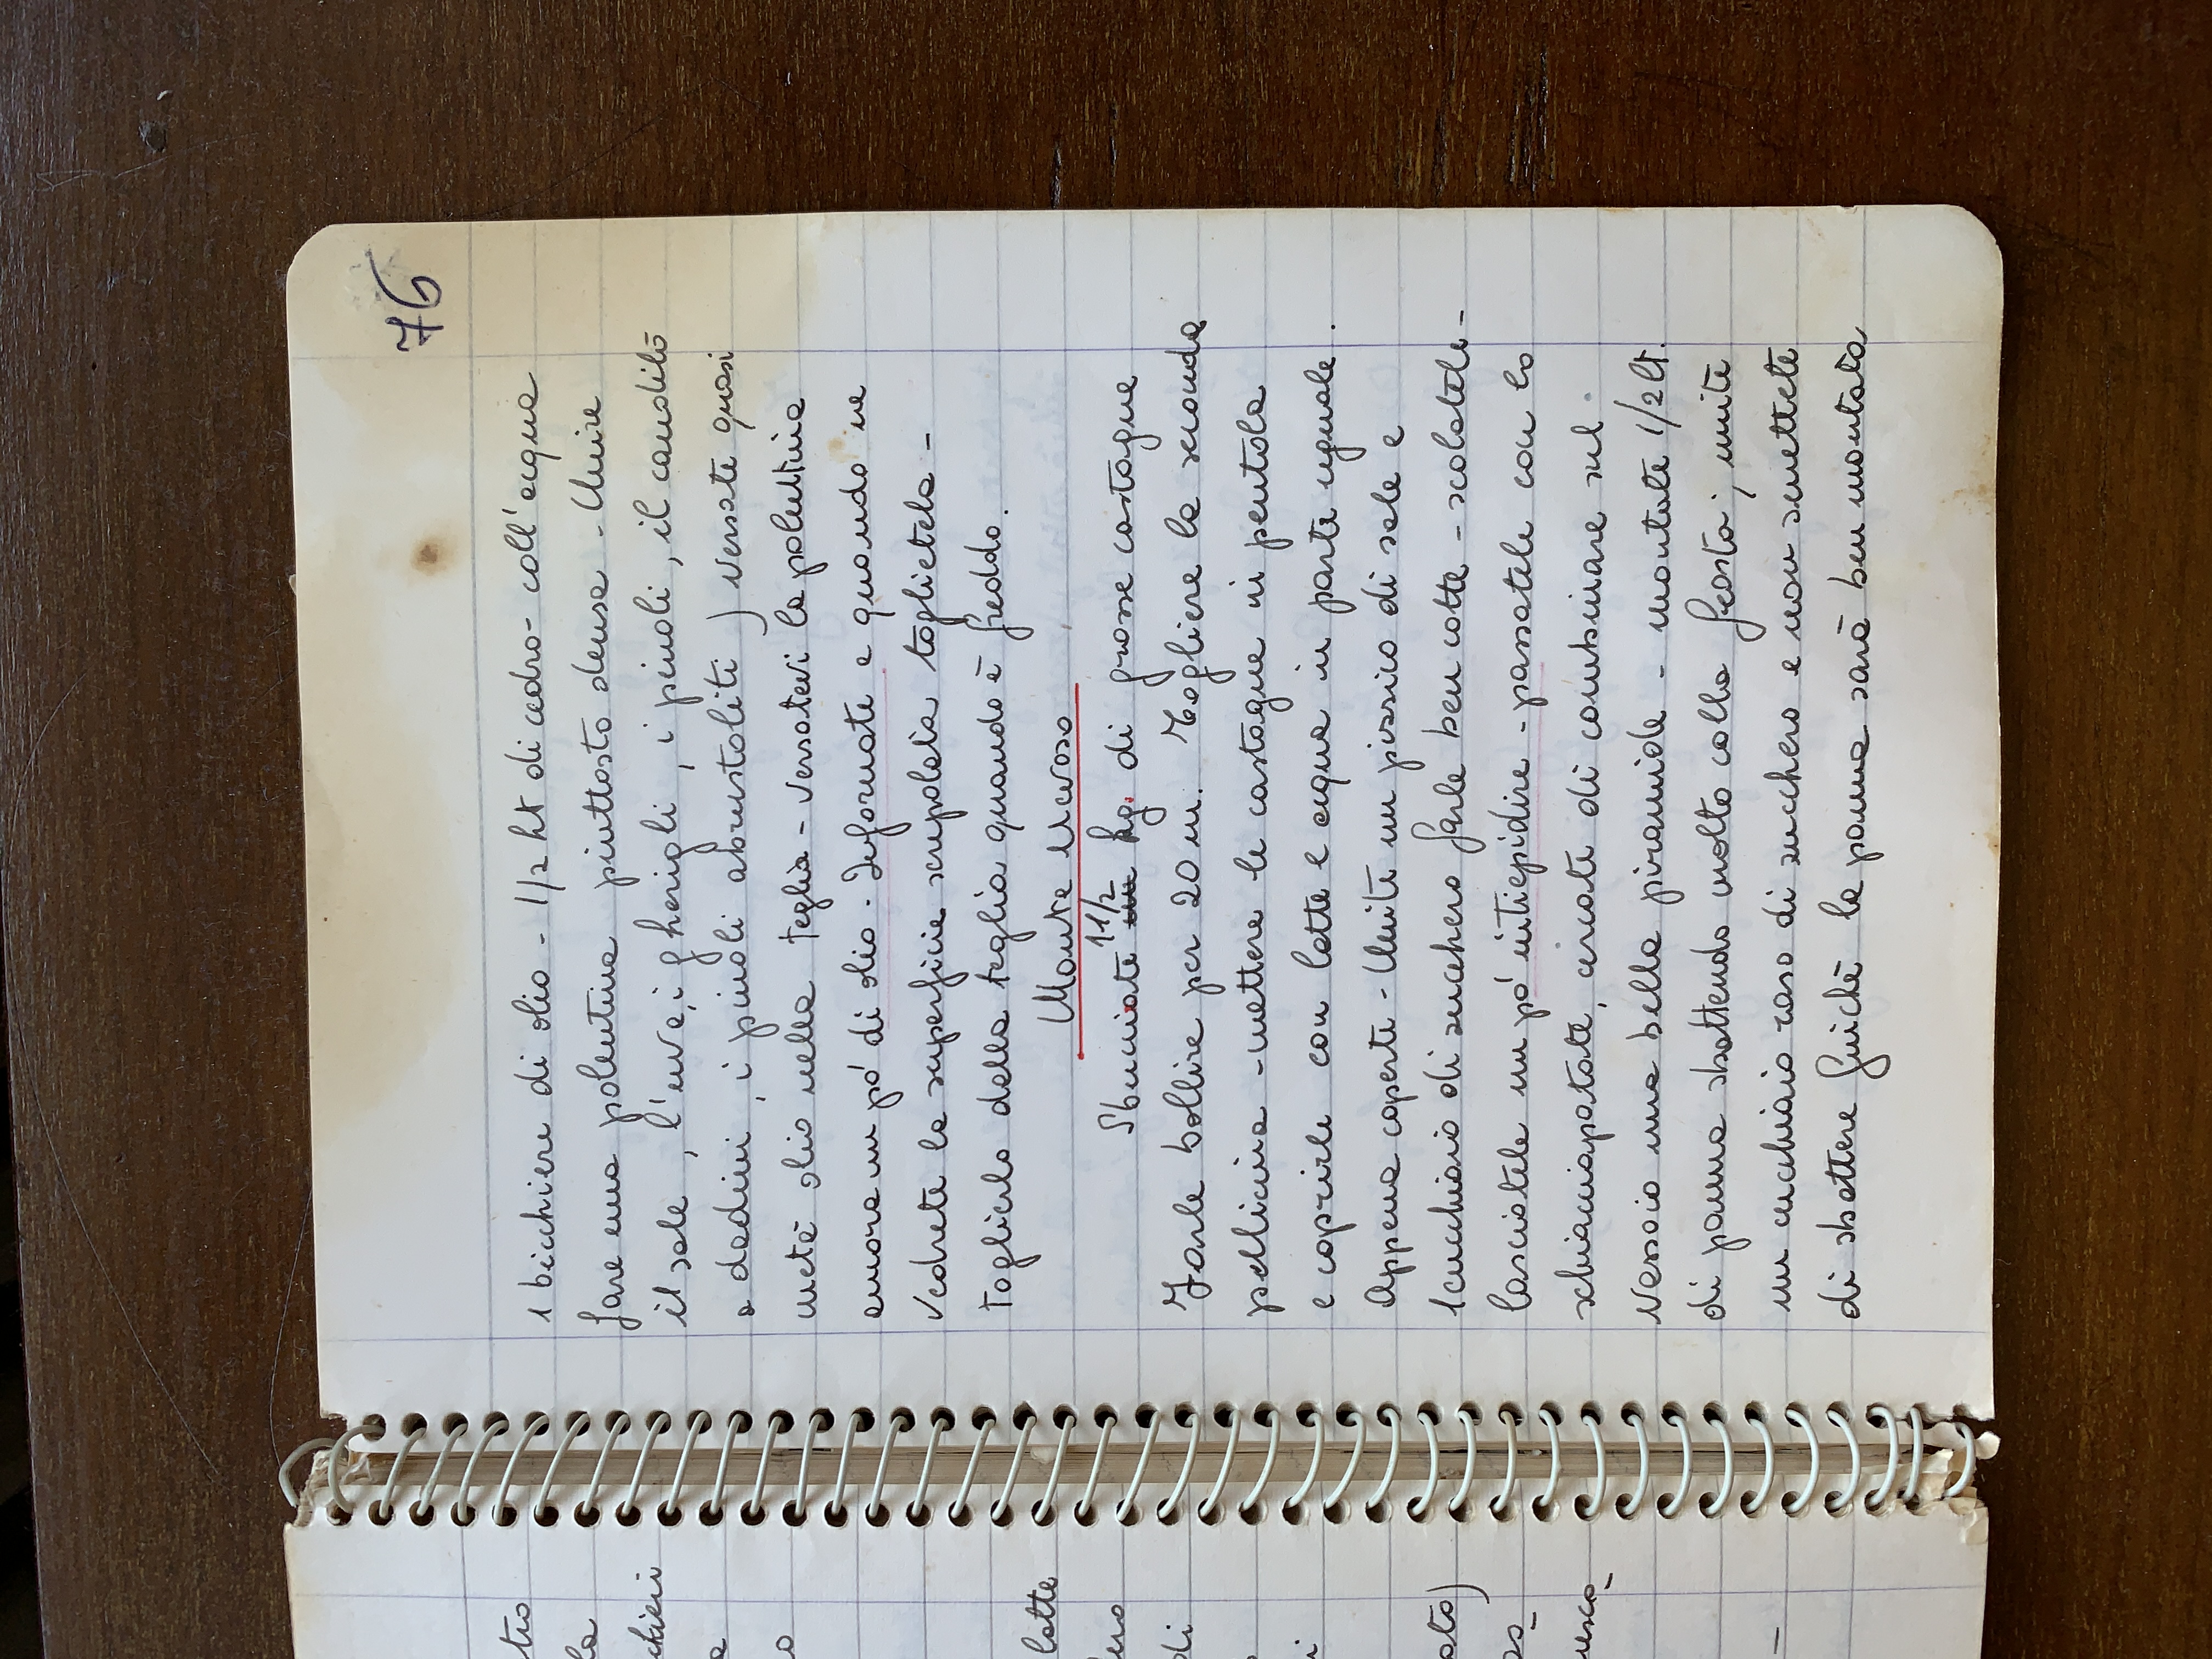 76
1 bicchiere di olio - 1/2 ht di cedro - coll'acqua
fare una polentina piuttosto densa - Unire
il sale, l'uva, i gherigli, i pinoli, il candito
a dadini, i pinoli abrustoliti) Versate quasi
metà olio nella teglia - Versatevi la polentina
ancora un pó di olio - Infornate e quando ne
vedrete la superficie screpolata toglietela -
Toglierlo dalla teglia quando è freddo.
Monte Nevoso
11/2
Sbucciate un kg. di grosse castagne
Farle bollire per 20 m. Togliere la seconda
pellicina - mettere le castagne in pentola
e coprirle con latte e acqua in parte uguale.
Appena coperte - Unite un pizzico di sale e
1 cucchiaio di zucchero farle ben cotte - scolatele -
lasciatele un pó intiepidire - passatele con lo
schiacciapatate, cercate di combinare sul
vassoio una bella piramide - montate 1/2 lt.
di panna sbattendo molto colla frusta; unite
un cucchiaio raso di zucchero e non smettete
di sbattere finchè la panna sarà ben montata
tro
la
chieri
latte
di
ato)